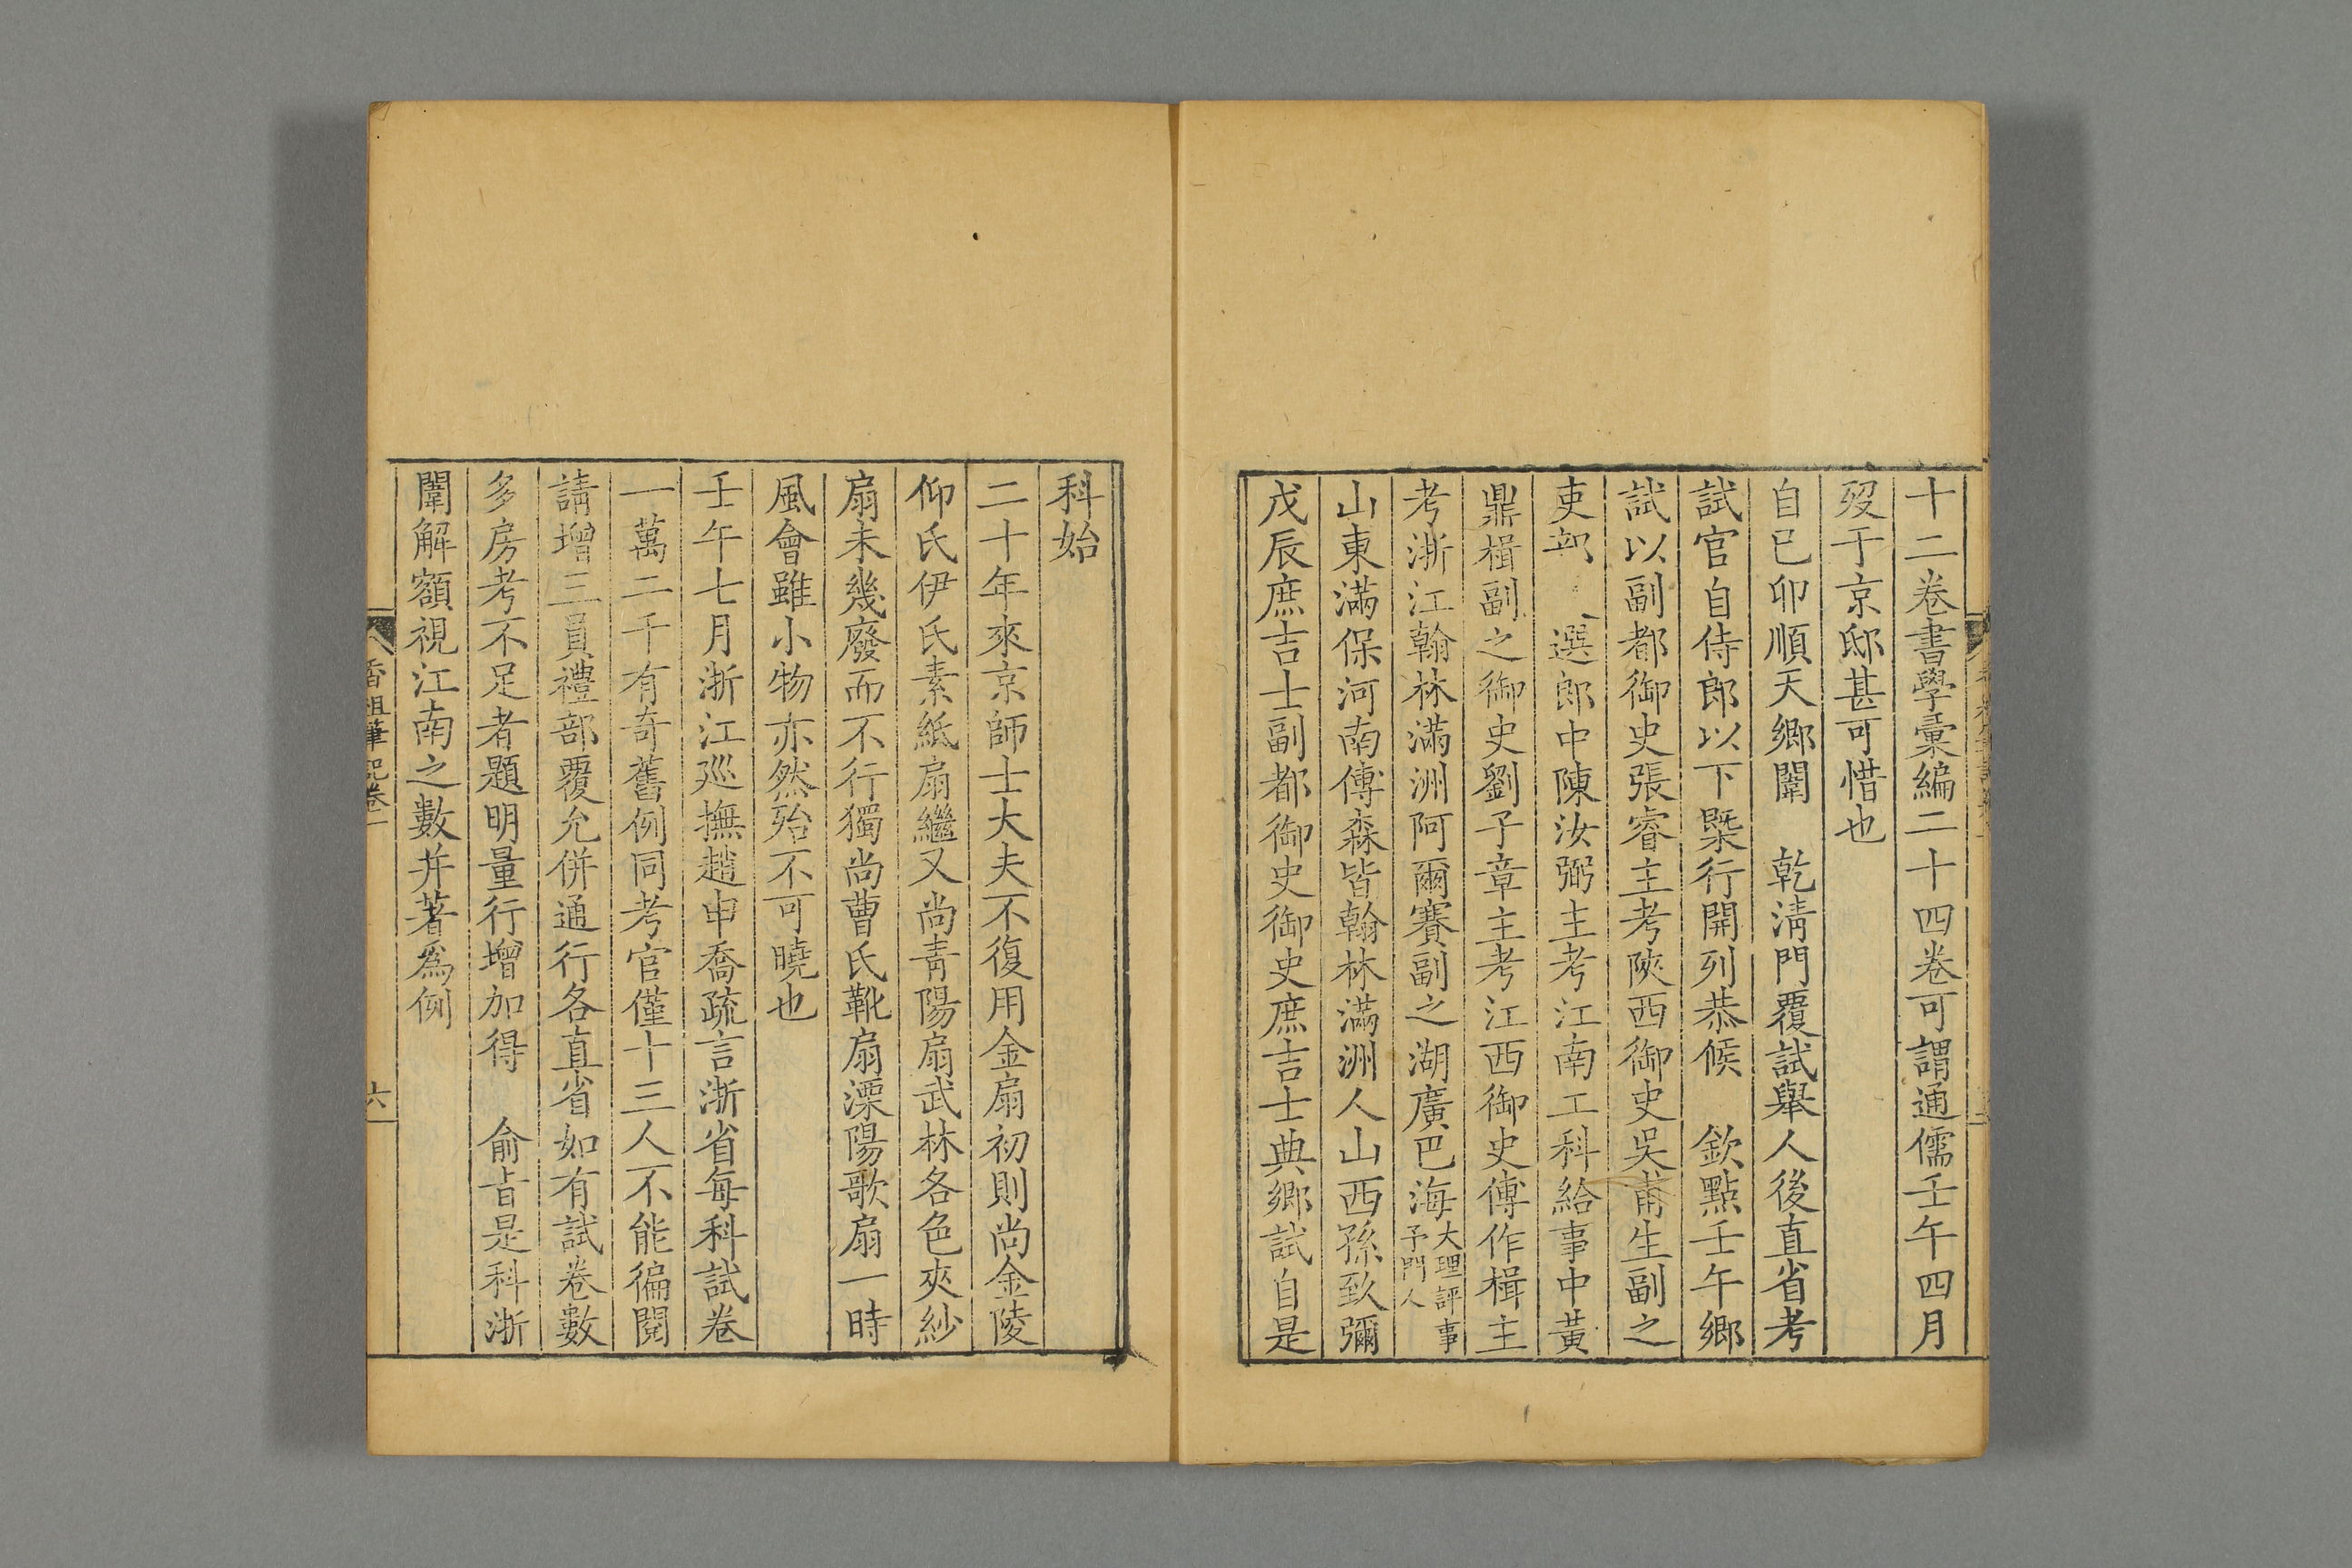 十二卷書學彙編二十四卷可謂通儒壬午四月
歿于京邸甚可惜也
自已卯順天鄉闈　乾淸門覆試舉人後直省考
試官自侍郎以下槩行開列恭候　欽點壬午鄉
試以副都御史張睿主考陝西御史吳甫生副之
吏部　選郎中陳汝弼主考江南工科給事中黃
鼎楫副之御史劉子章主考江西御史傅作楫主
考浙江翰林滿洲阿爾賽副之湖廣巴海大理評事予門人
山東滿保河南傅森皆翰林滿洲人山西孫致彌
戊辰庶吉士副都御史御史庶吉士典鄉試自是
科始
二十年來京師士大夫不復用金扇初則尚金陵
仰氏伊氏素紙扇繼又尚靑陽扇武林各色夾紗
扇未幾廢而不行獨尚曹氏靴扇溧陽歌扇一時
風會雖小物亦然殆不可曉也
壬午七月浙江廵撫趙申喬疏言浙省每科試卷
一萬二千有奇舊例同考官僅十三人不能徧閱
請增三員禮部覆允併通行各直省如有試卷數
多房考不足者題明量行增加得　俞旨是科浙
闈解額視江南之數并著爲例
香祖筆記卷一
六